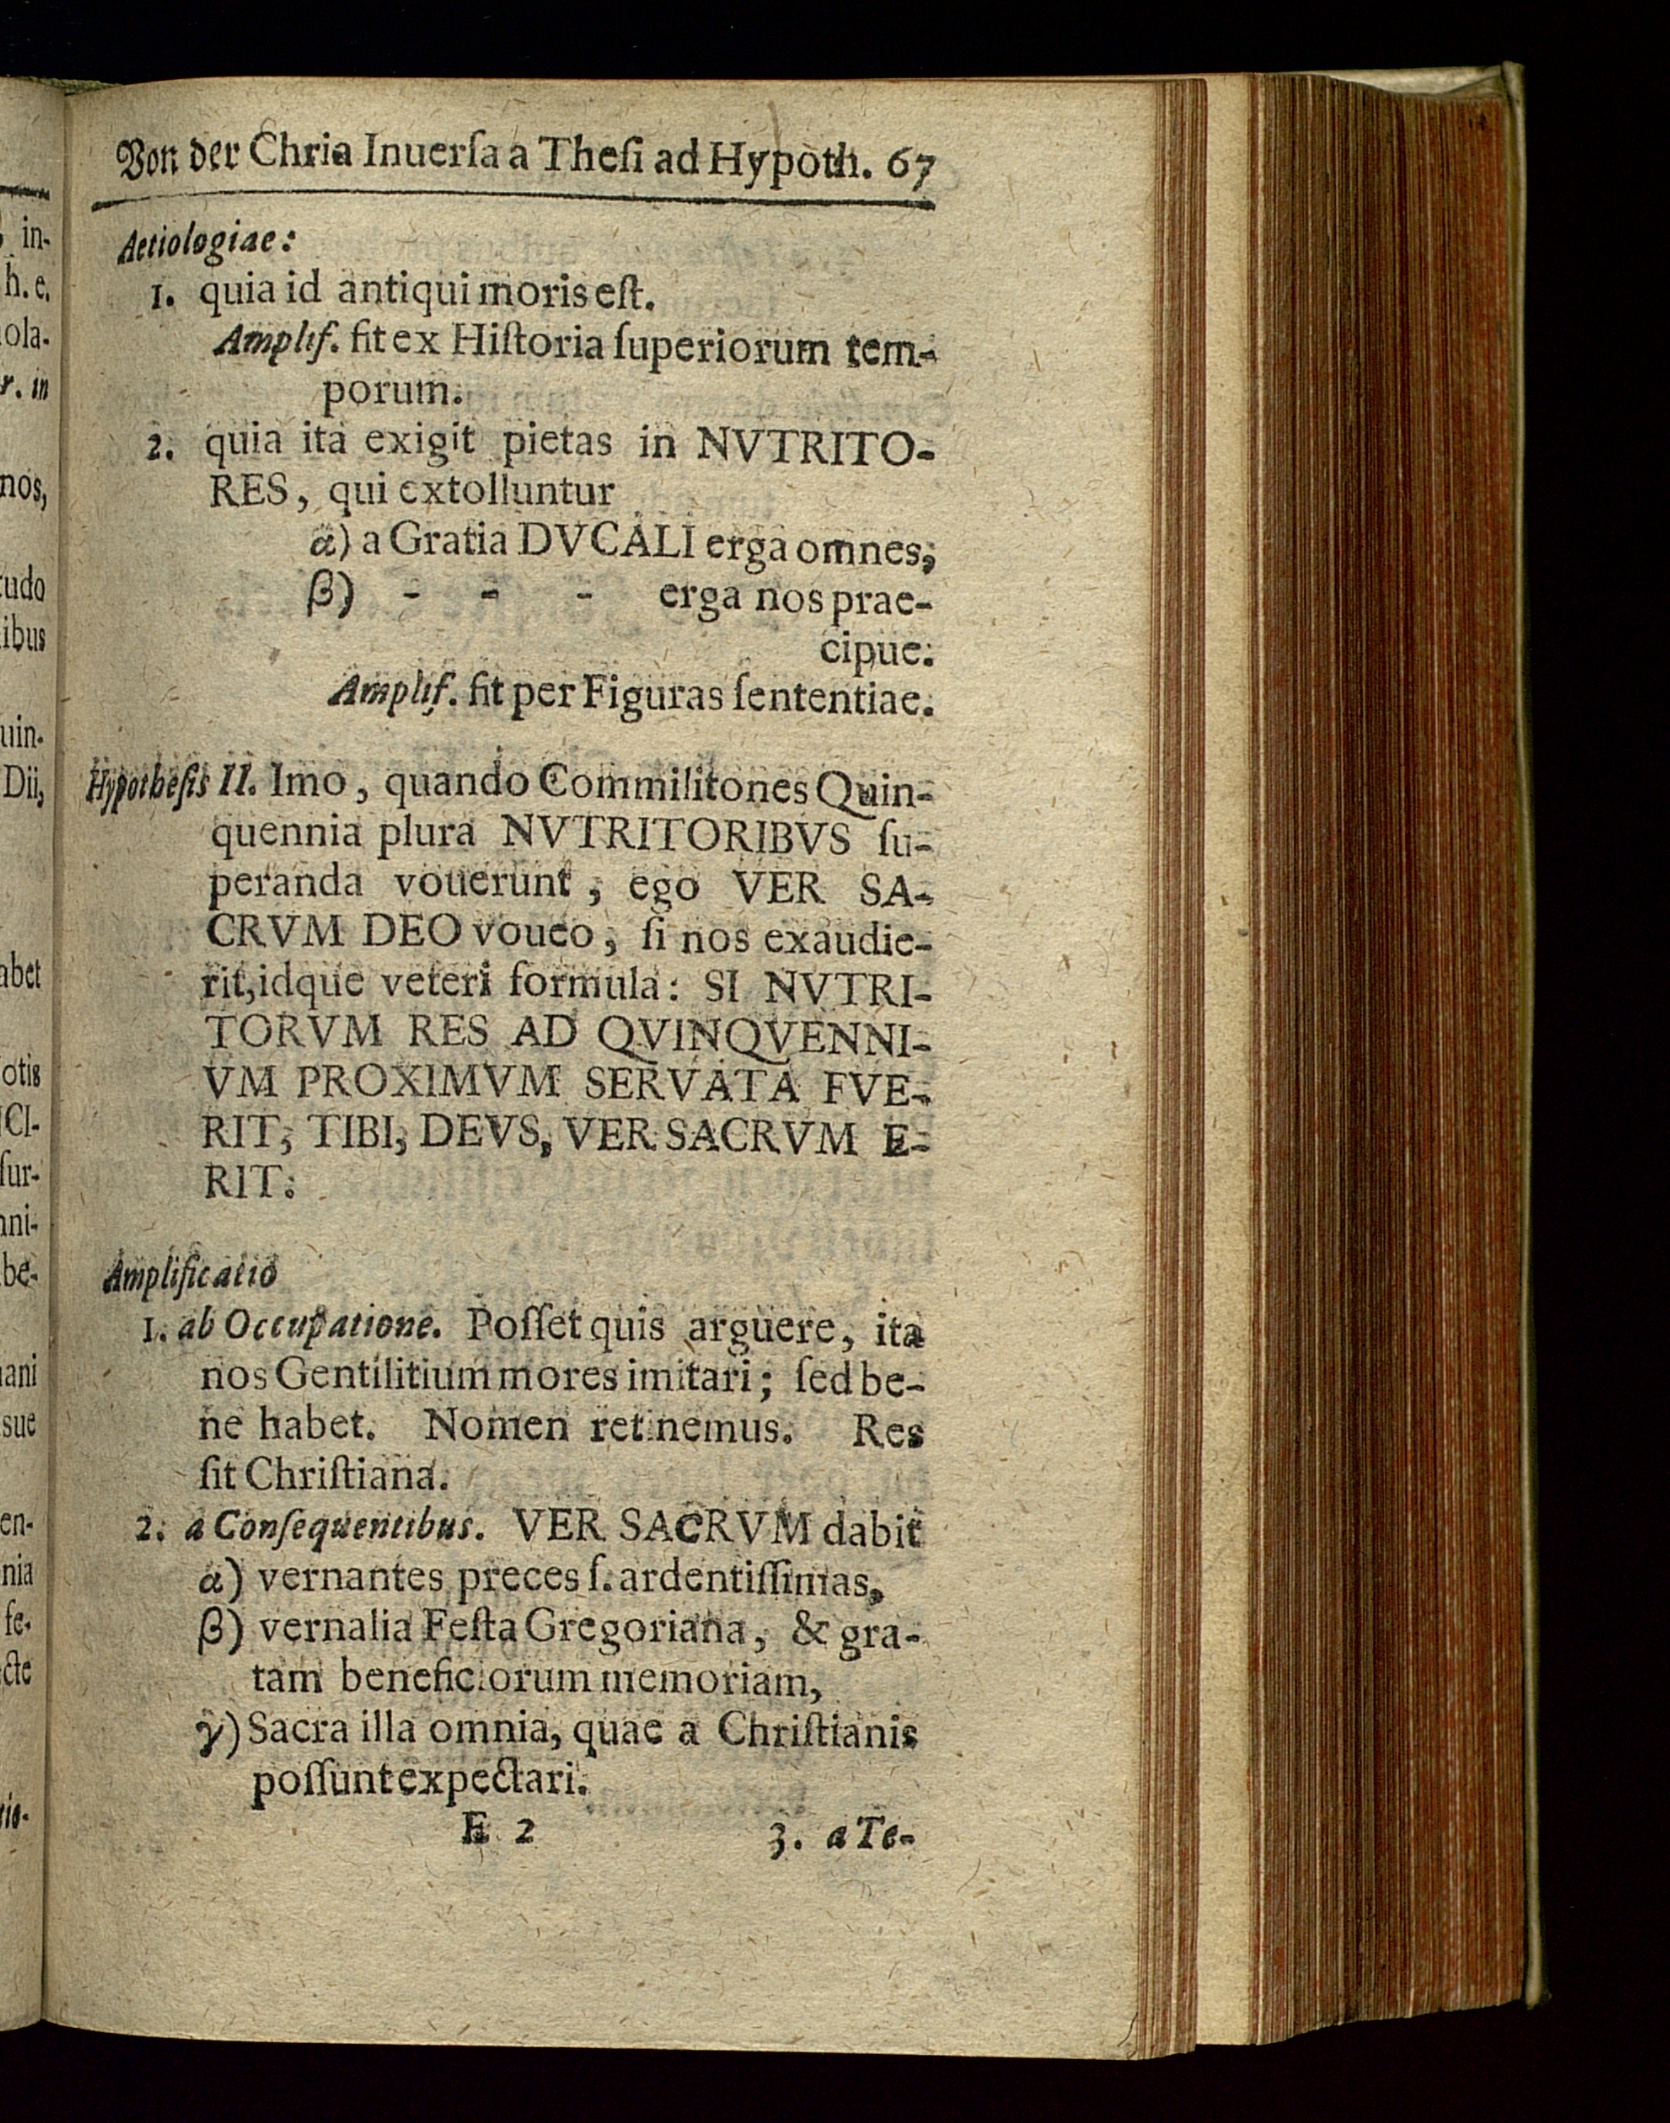 Von der Chria Inuerſa a Theſi ad Hypoth. 67
Aetiologiae:
1. quia id antiqui moris eſt.
Amplif. fit ex Hiſtoria ſuperiorum tem-
porum.
2. quia ita exigit pietas in NVTRITO-
RES, qui extolluntur
α) a Gratia DVCALI erga omnes,
β) - - - erga nos prae-
cipue.
Amplif. fit per Figuras ſententiae.
Hypotheſis II. Imo, quando Commilitones Quin-
quennia plura NVTRITORIBVS ſu-
peranda vouerunt, ego VER SA-
CRVM DEO voueo, ſi nos exaudie-
rit, idque veteri formula: SI NVTRI-
TORVM RES AD QVINQVENNI-
VM PROXIMVM SERVATA FVE-
RIT, TIBI, DEVS, VER SACRVM E-
RIT.
Amplificatio
1. ab Occupatione. Poſſet quis arguere, ita
nos Gentilitium mores imitari; ſed be-
ne habet. Nomen retinemus. Res
ſit Chriſtiana.
2. a Conſequentibus. VER SACRVM dabit
α) vernantes preces ſ. ardentiſſimas,
β) vernalia Feſta Gregoriana, & gra-
tam beneficiorum memoriam,
γ) Sacra illa omnia, quae a Chriſtianis
poſſunt expectari.
E 2 3. a Te-